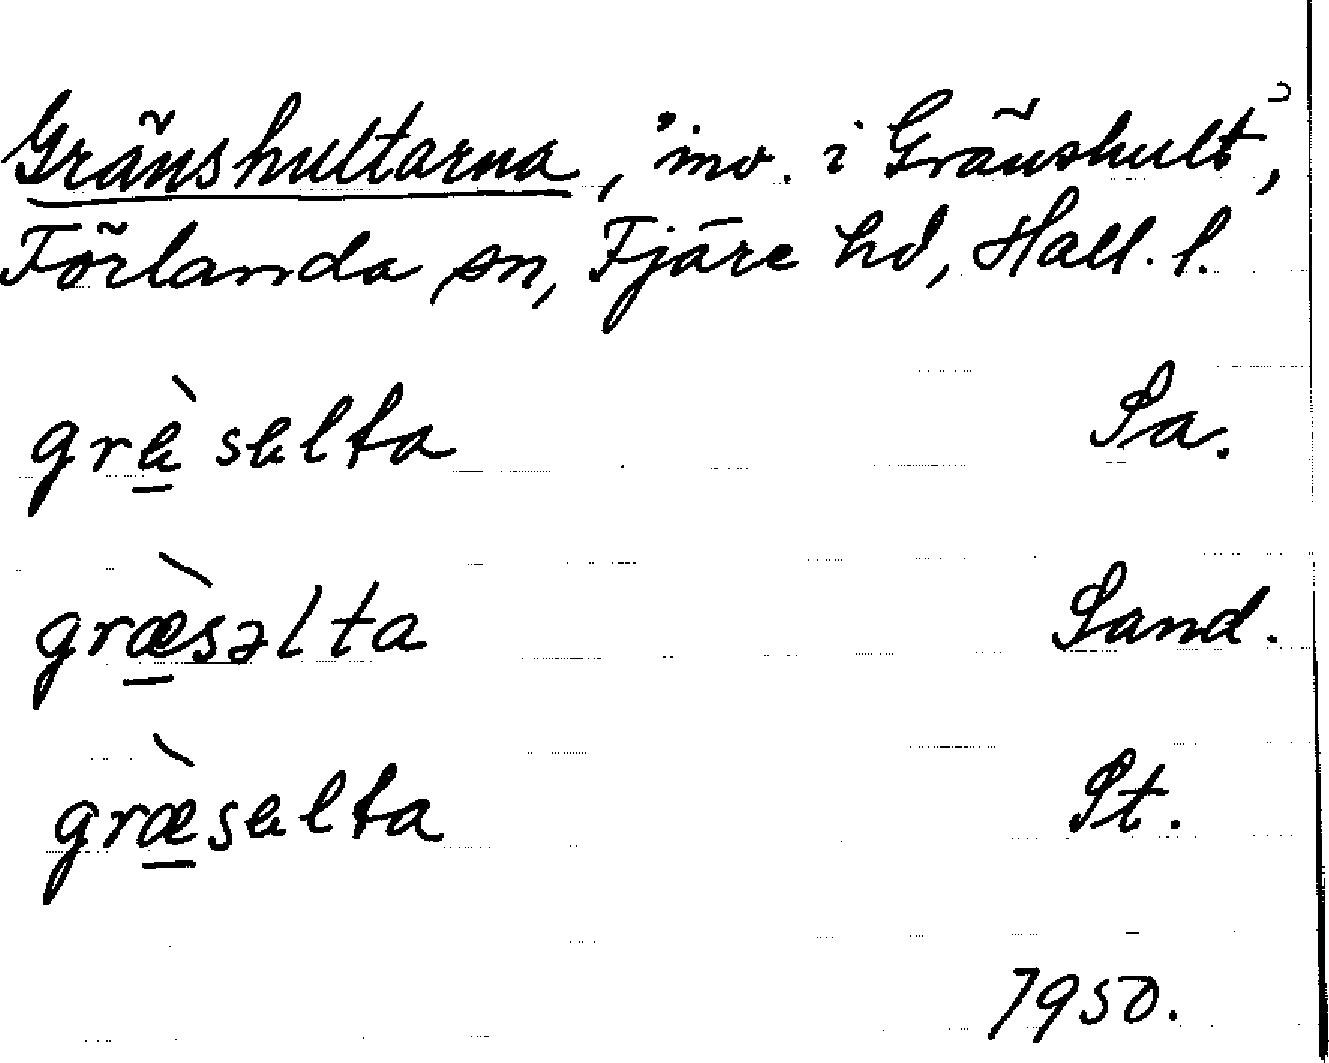 Gränshultarna, "inv. i Gränshult",
Förlanda sn, Fjäre hd, Hall. l.
græ̀sæltа Sa.
græ̀səlta Sand.
græ̀sælta St.
1950.